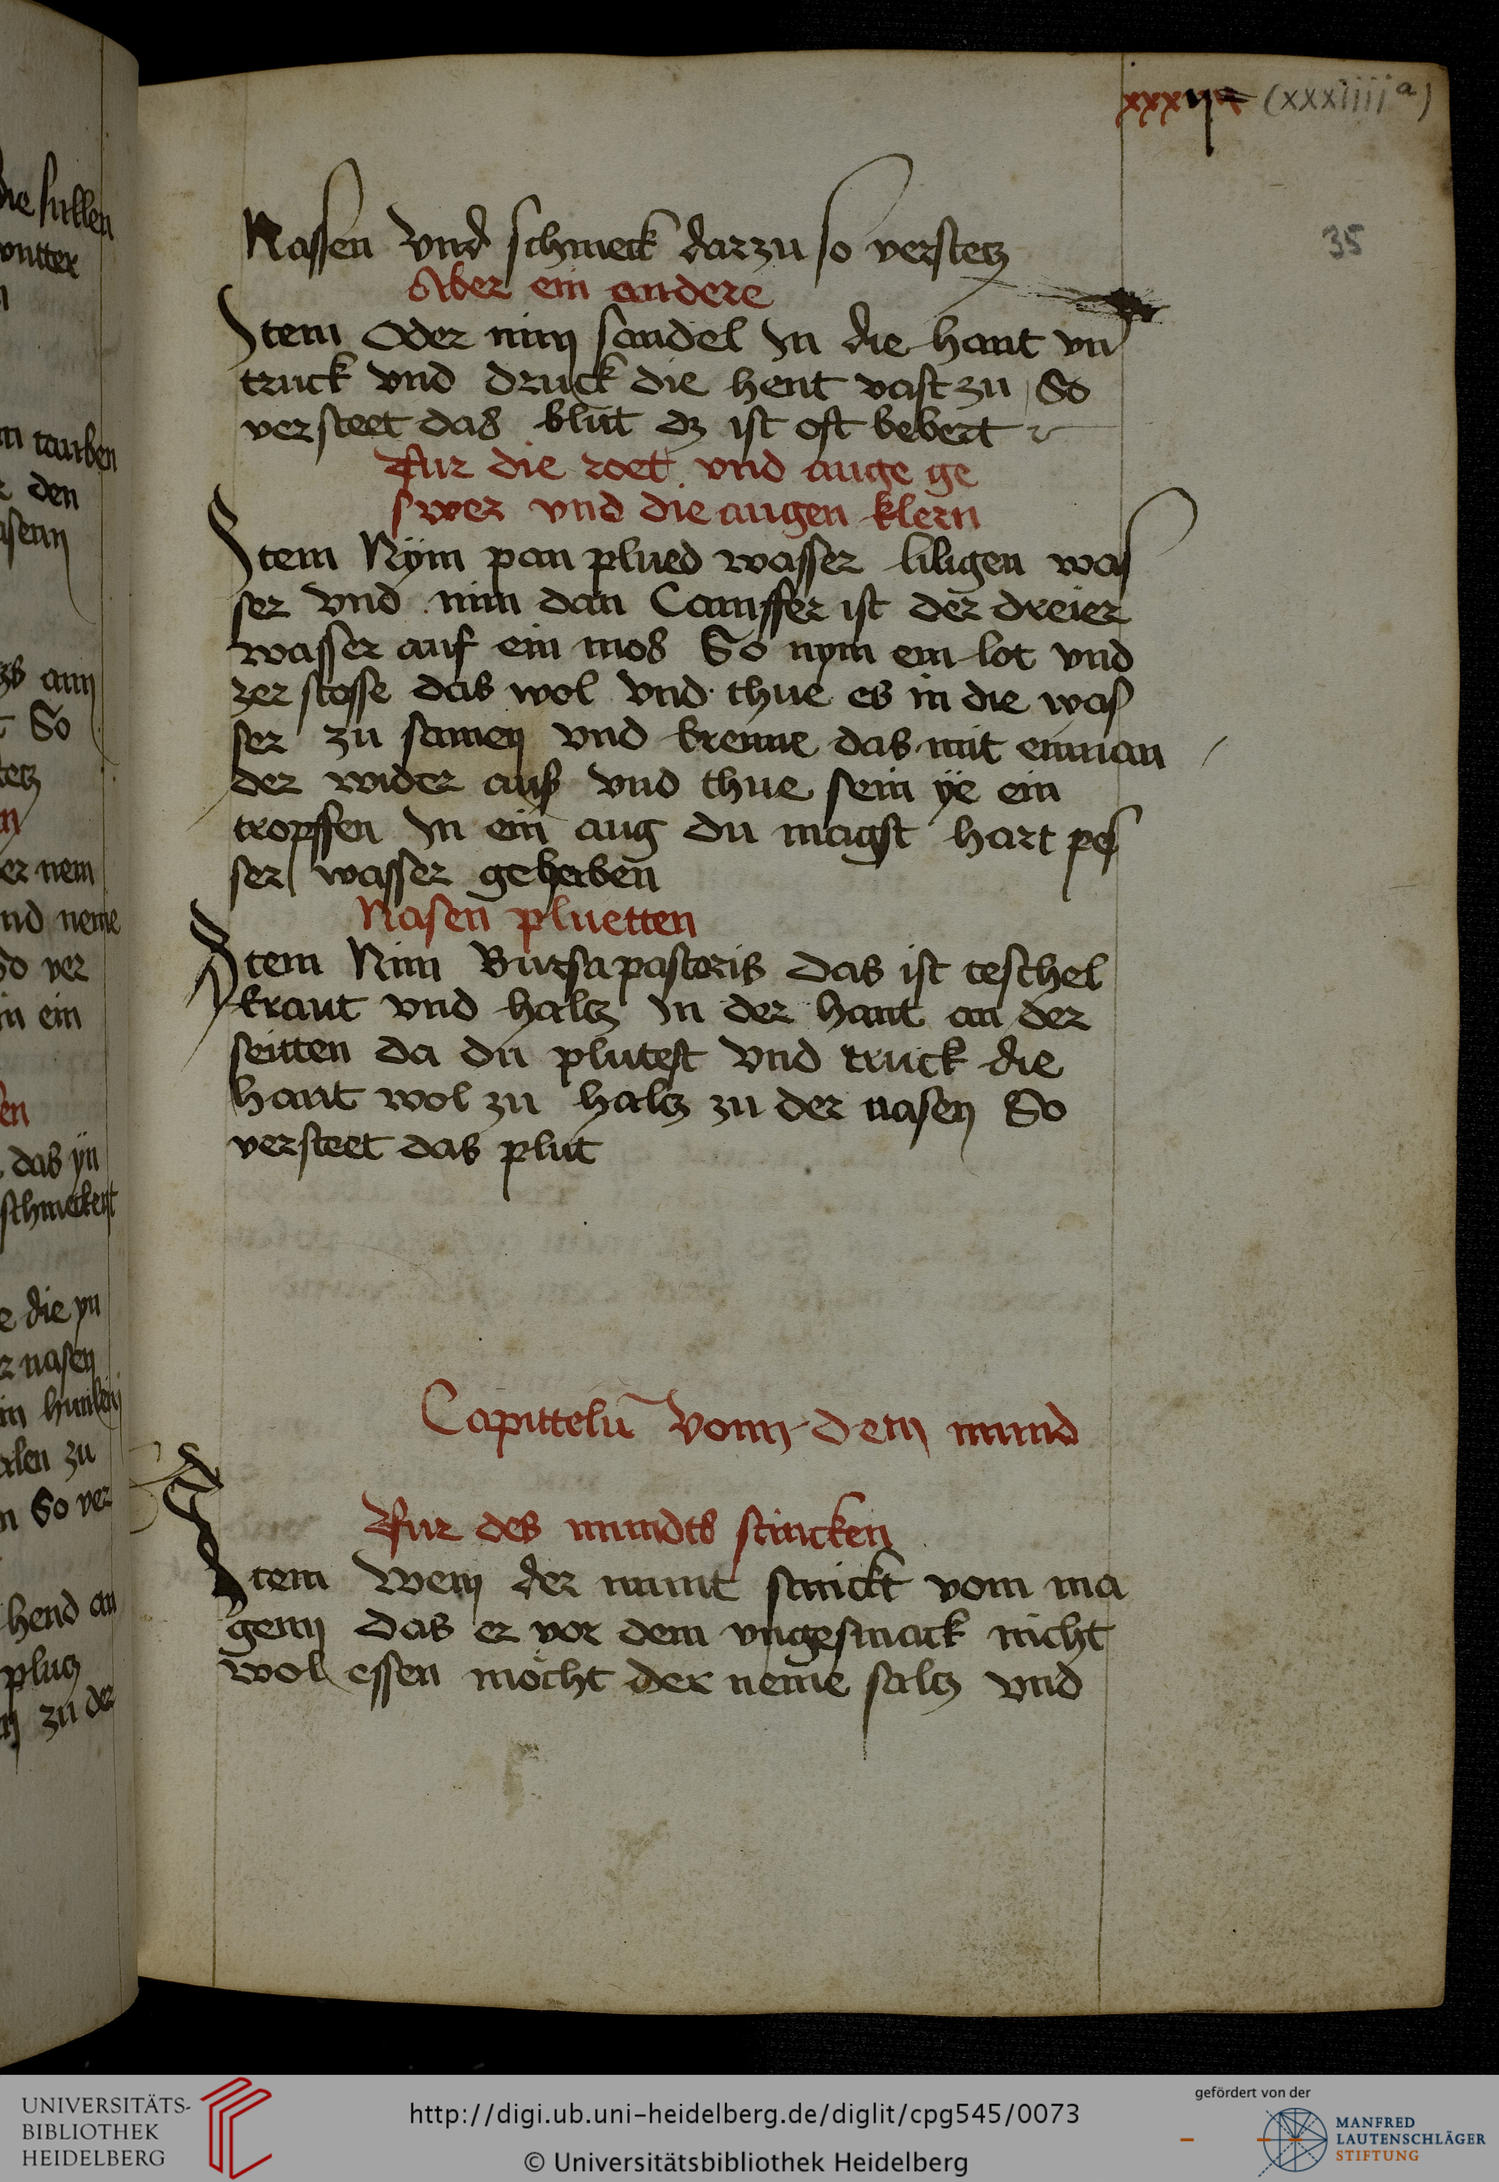 xxxiiii (xxxiiii a)
35
Nassen vnd schmeck darzu so verstetz
Aber ein andere
Item Oder nim sandel In die hant vn
truck vnd druck die hent vast zu So
versteet das blut dz ist oft bebert
Fur die roet vnd auge ge
swer vnd die augen klern
Item Nym pan plued wasser liligen was
ser vnd nim dan Camffer ist der dreier
wasser auf ein mos So nym ein lot vnd
zer stosse das wol vnd thue es in die was
ser zu samen vnd brenne das mit einnan
der wider auß vnd thue sein ÿe ein
tropffen In ein aug du magst hart pes
ser wasser gehaben
Nasen pluetten
Item Nim Bursapastoris das ist teschel
kraut vnd haltz In der hant an der
seitten da du plutest vnd truck die
hant wol zu haltz zu der nasen So
versteet das plut
Capittelū vonn dem mund
Fur des mundts stincken
Item Wem der munt stinckt vom ma
genn das er vor dem vngesmack nicht
wol essen mocht der neme saltz vnd
die sullen
tauben
den
So
er nem
nd neme
So ver
in ein
das yn
schmeckent
die yn
nasen
zu
So ver
hend an
plutz
zu der
UNIVERSITÄTS-
BIBLIOTHEK
HEIDELBERG
http://digi.ub.uni-heidelberg.de/diglit/cpg545/0073
© Universitätsbibliothek Heidelberg
gefördert von der
MANFRED
LAUTENSCHLÄGER
STIFTUNG